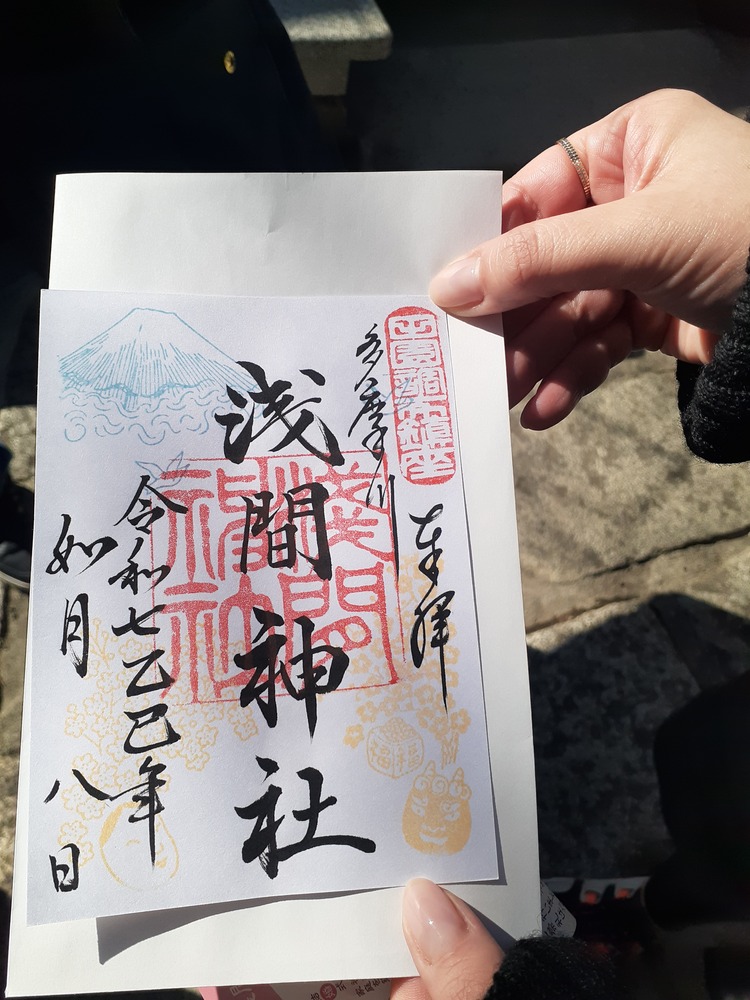 田園調布鎮座
奉拝
多摩川
浅間神社
令和七乙巳年
如月
八日